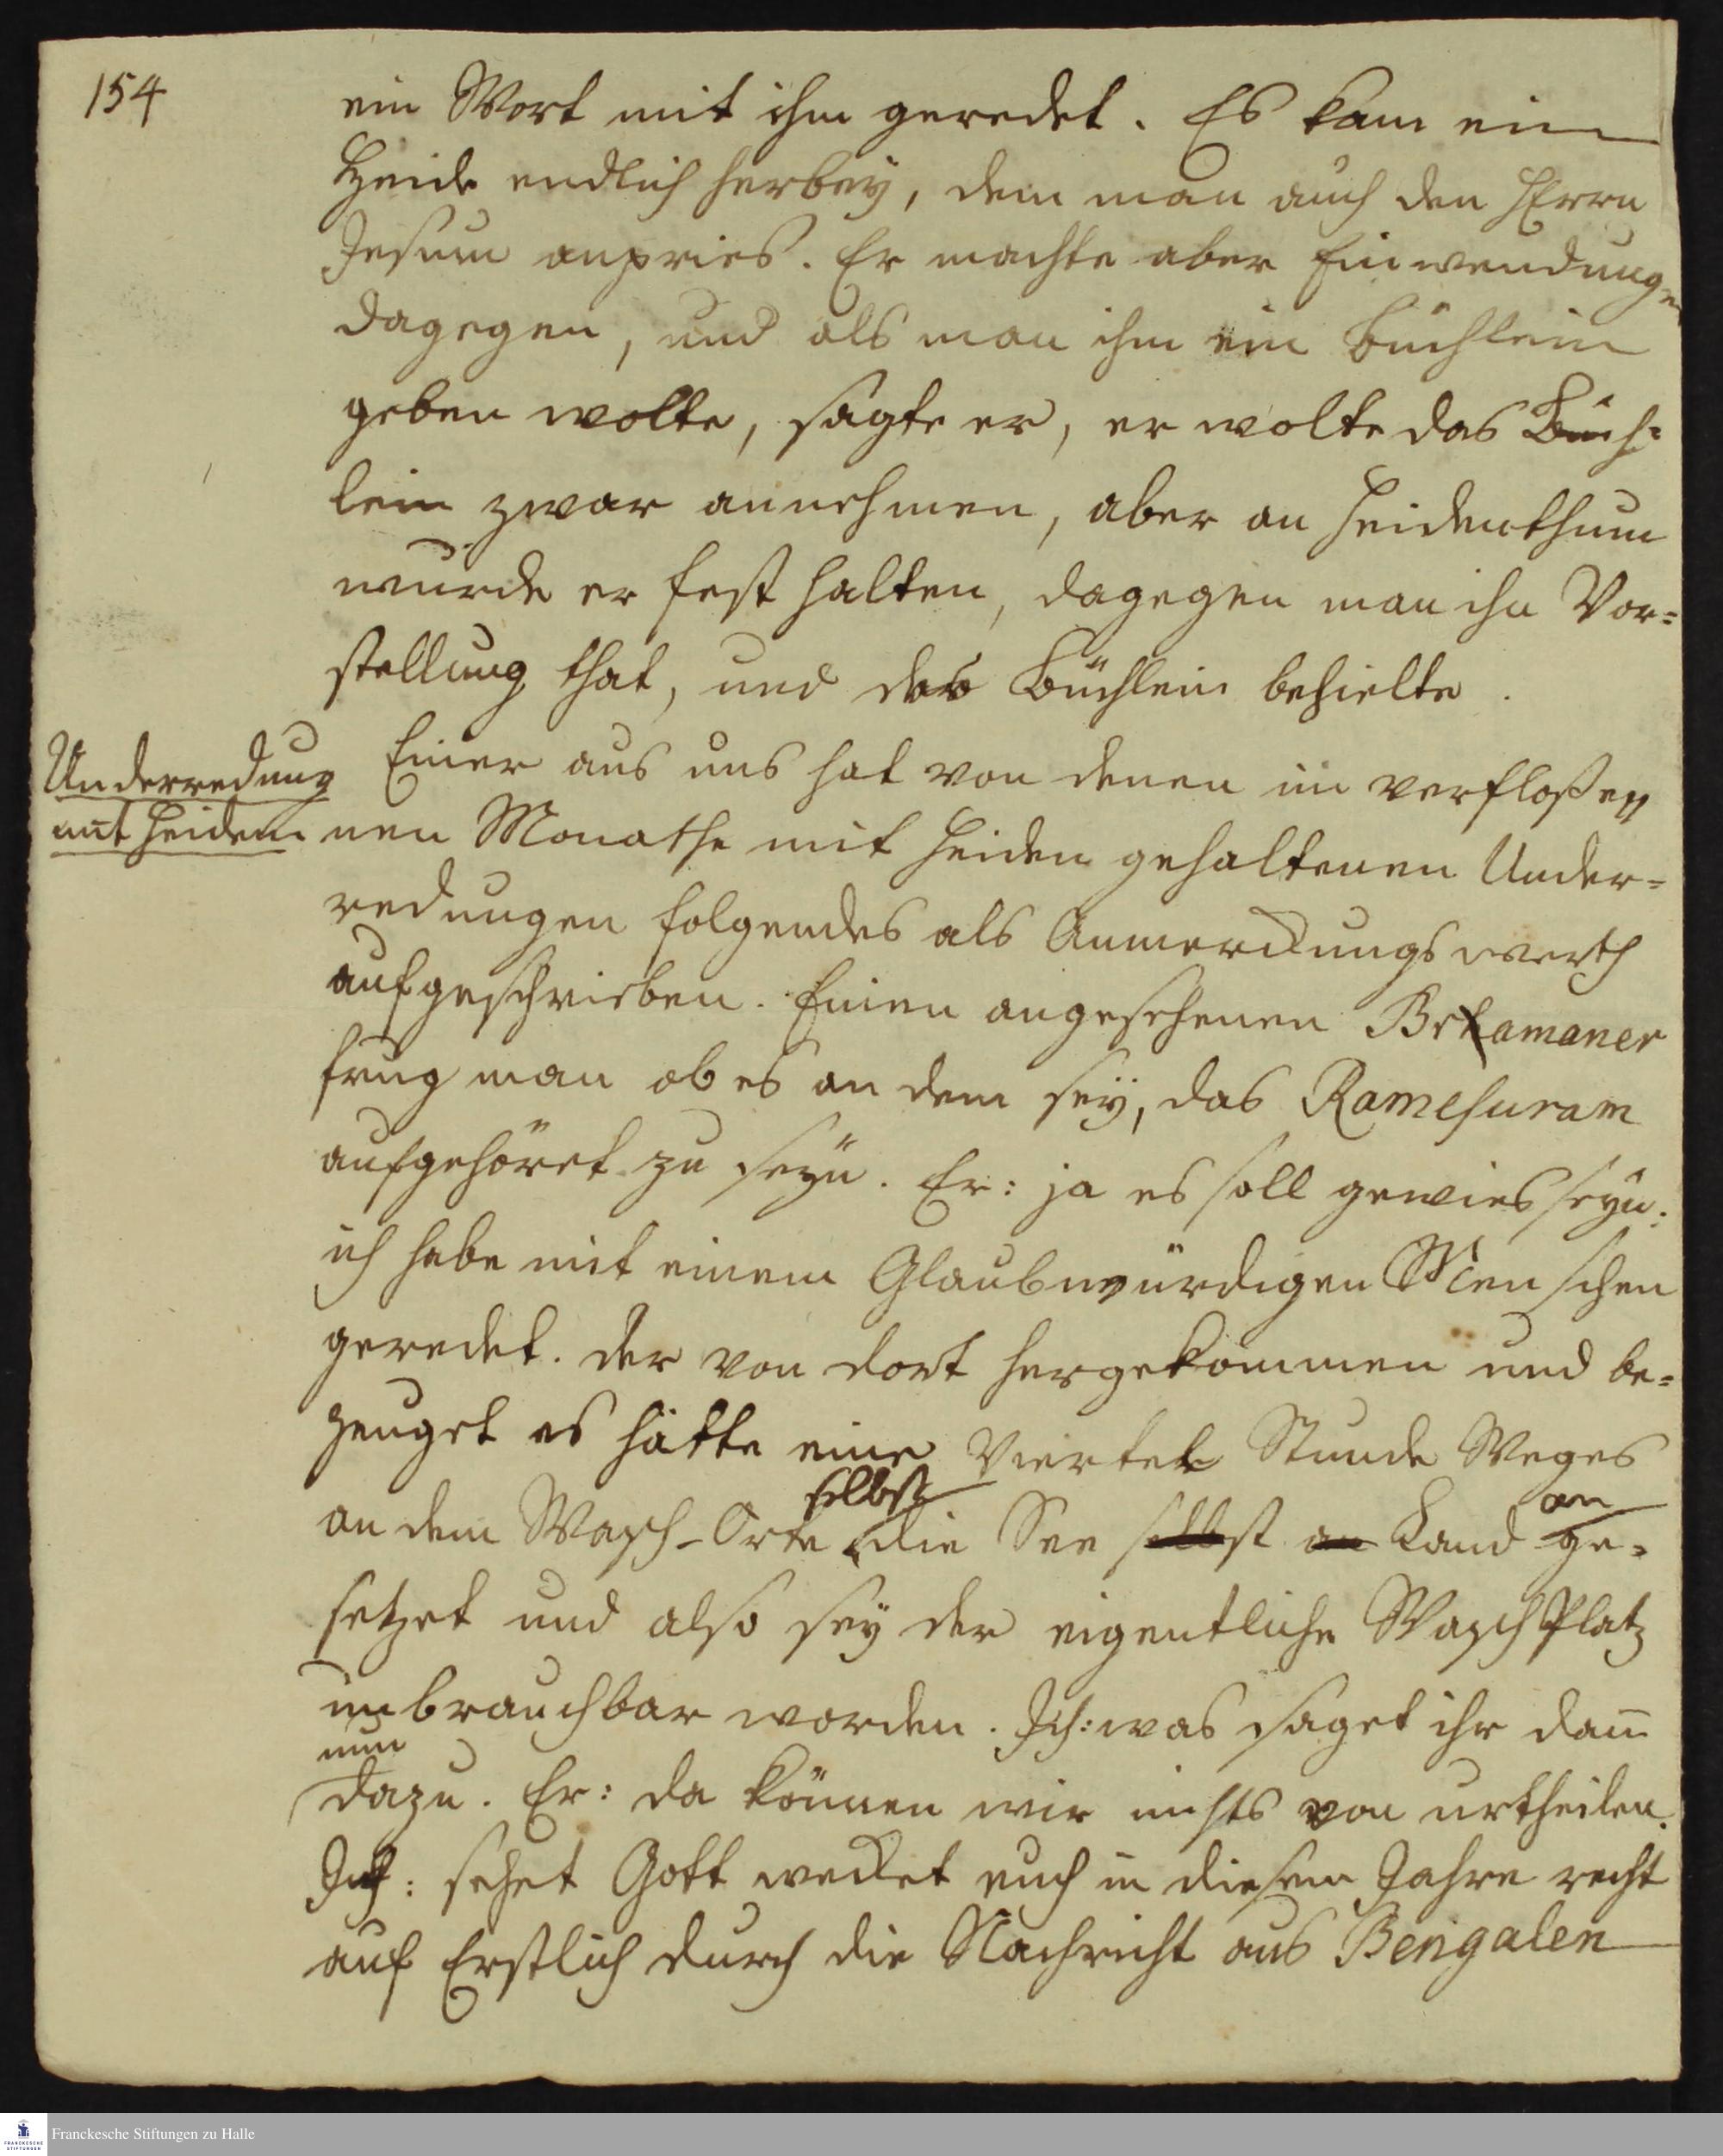 154
ein Wort mit ihm geredet. Es kam ein
Heide endlich herbey, dem man auch den HErrn
Jesum anpries. Er machte aber Einwendungen
dagegen, und als man ihm ein Büchlein
geben wolte, sagte er, er wolte das Büch=
lein zwar annehmen, aber an Heidenthum
wurde er fest halten, dagegen man ihn Vor=
stellung that, und das Büchlein behielte.
Underredung
mit Heiden
Einer aus uns hat von denen im verfloße=
nen Monathe mit Heiden gehaltenen Under=
redungen folgendes als Anmerckungs werth
aufgeschrieben. Einen angesehenen Bramaner
frug man ob es an dem sey, das Ramesuram
aufgehöret zu seyn. Er: ja es soll gewies seyn.
ich habe mit einem Glaubwürdigen Menschen
geredet. der von dort hergekommen und be=
zeuget es hätte eine Viertel Stunde Weges
selbst an
an dem Wasch-Orte die See selbst an Land ge=
setzet und also sey der eigentliche Wasch Platz
unbrauchbar worden. Ich: was saget ihr dann
nun
dazu. Er: da können wir nichts von urtheilen.
Ich: sehet Gott wecket euch in diesem Jahre recht
auf Erstlich durch die Nachricht aus Bengalen
Franckesche Stiftungen zu Halle
FRANCKESCHE
STIFTUNGEN